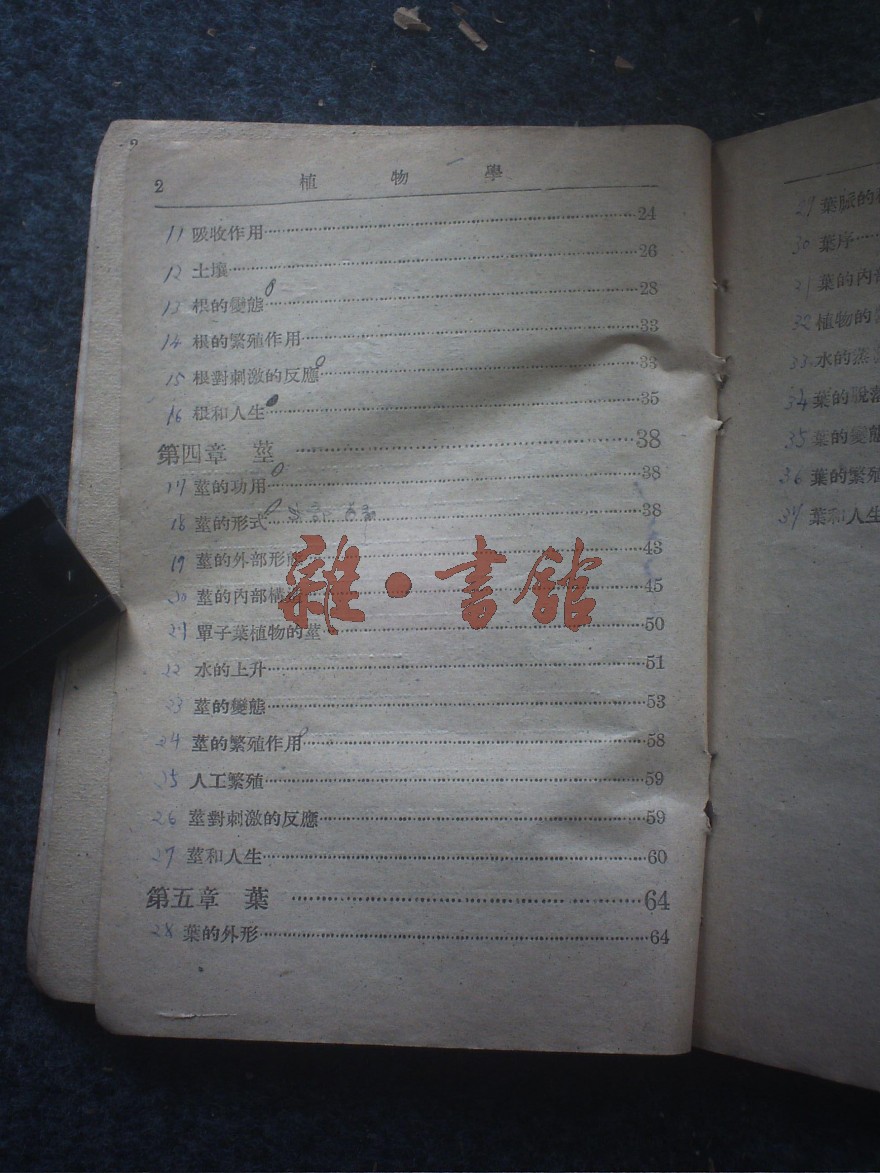 2 植物學
11 吸收作用……24
12 土壤……26
13 根的變態……28
14 根的繁殖作用……33
15 根對刺激的反應……33
16 根和人生……35
第四章 莖……38
17 莖的功用……38
18 莖的形式……38
19 莖的外部形態……43
20 莖的內部構造……45
21 單子葉植物的莖……50
22 水的上升……51
23 莖的變態……53
24 莖的繁殖作用……58
25 人工繁殖……59
26 莖對刺激的反應……59
27 莖和人生……60
第五章 葉……64
28 葉的外形……64
雜·書館
29 葉脈的
30 葉序……
31 葉的內
32 植物的
33 水的蒸
34 葉的脫落
35 葉的變態
36 葉的繁殖
37 葉和人生